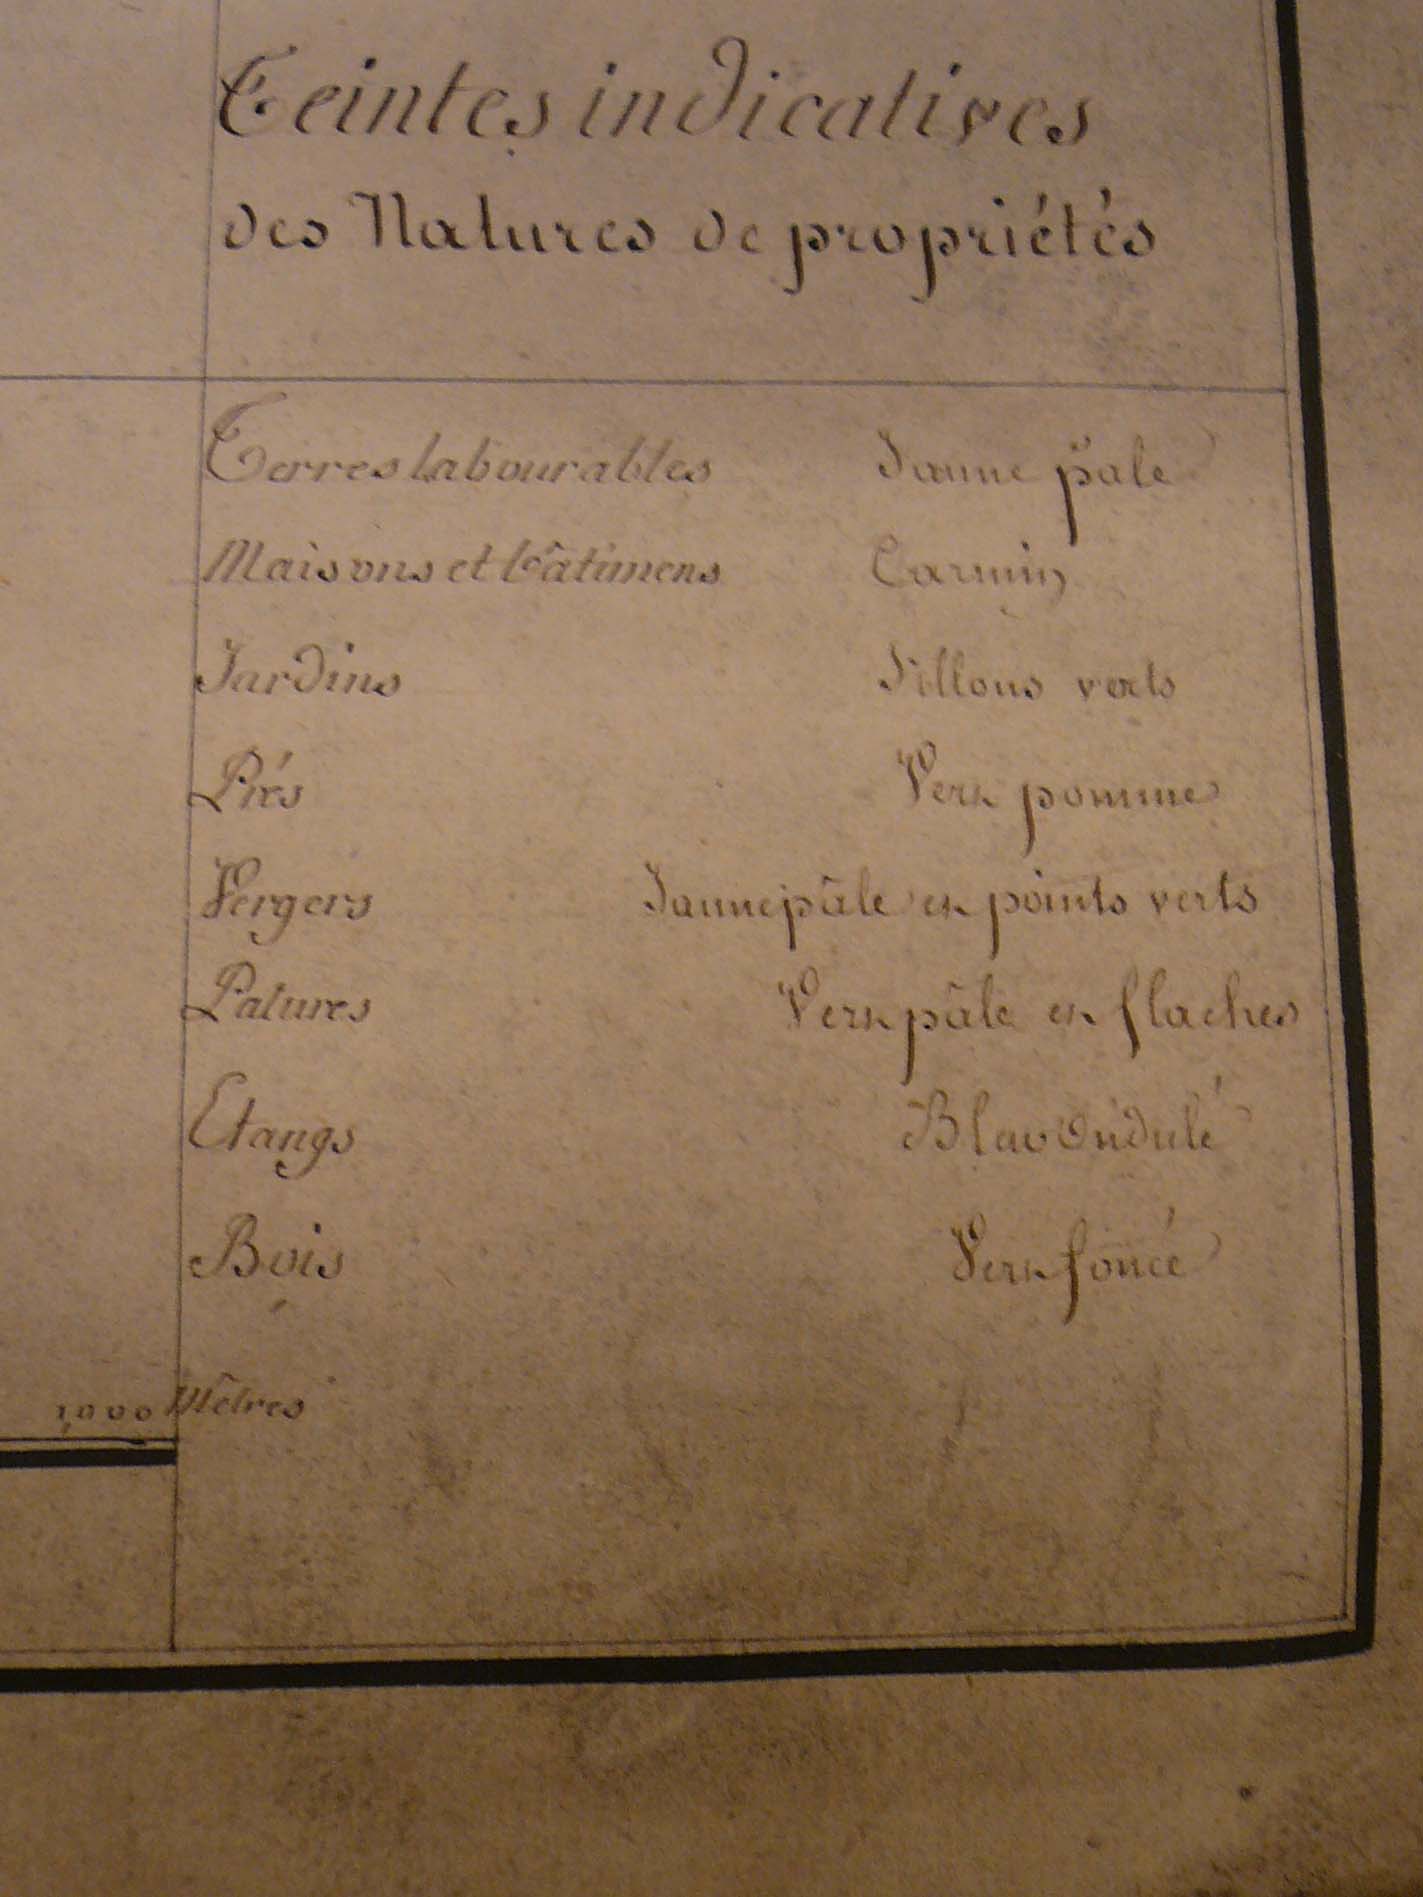 Teintes indicatives
des Natures de propriétés
Terres labourables Jaune pâle
Maisons et bâtimens Carmin
Jardins Sillons verts
Prés Vert pomme
Vergers Jaune pâle et points verts
Patures Vert pâle et flaches
Etangs Bleu ondulé
Bois Vert foncé
1,000 Mètres